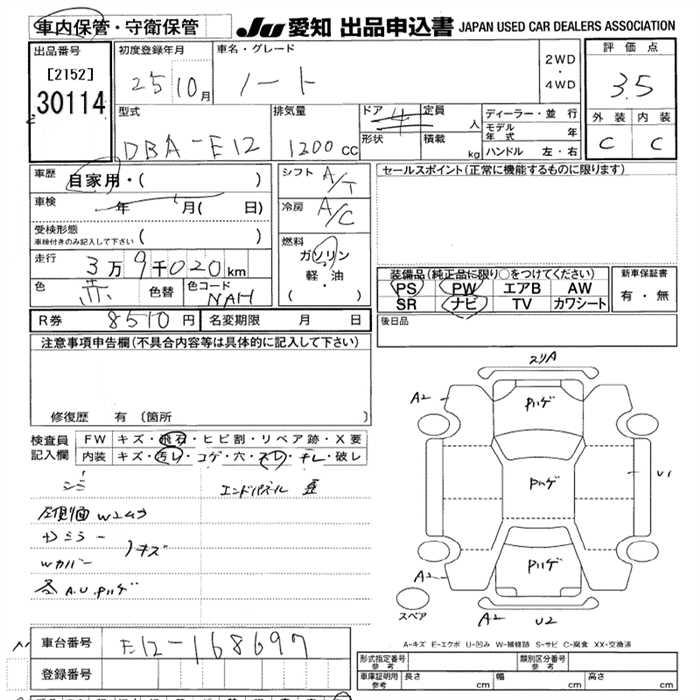 車内保管・守衛保管
JU 愛知 出品申込書 JAPAN USED CAR DEALERS ASSOCIATION
出品番号
[2152]
30114
初度登録年月
25 10月
車名・グレード
ノート
2WD
・
4WD
評価点
3.5
外装 内装
C C
型式
DBA-E12
排気量
1200cc
ドア 4
形状
定員 人
積載 kg
ディーラー・並行
モデル年式 年
ハンドル 左・右
車歴 自家用・( )
車検 年 月( 日)
受検形態
車検付きのみ記入して下さい ( )
走行 3万9千020km
色 赤 色替 色コード NAH
シフト A/T
冷房 A/C
燃料
ガソリン
軽・油
( ・ )
セールスポイント(正常に機能するものに限ります)
装備品(純正品に限り○をつけてください)
PS PW エアB AW
SR ナビ TV カワシート
新車保証書
有・無
R券 8510円 名変期限 月 日
後日品
注意事項申告欄(不具合内容等は具体的に記入して下さい)
修復歴 有(箇所
検査員
記入欄
FW キズ・飛石・ヒビ割・リペア跡・X要
内装 キズ・汚レ・コゲ・穴・スレ・チレ・破レ
エンドパネル
A.U.Pハゲ
スリA
A2
Pハゲ
Pハゲ
U1
Pハゲ
A2
A2 U2
スペア
A-キズ E-エクボ U-凹み W-補修跡 S-サビ C-腐食 XX-交換済
車台番号 E12-168697
登録番号
形式指定番号
参考
類別区分番号
参考
車庫証明用
参考
長さ cm 幅 cm 高さ cm